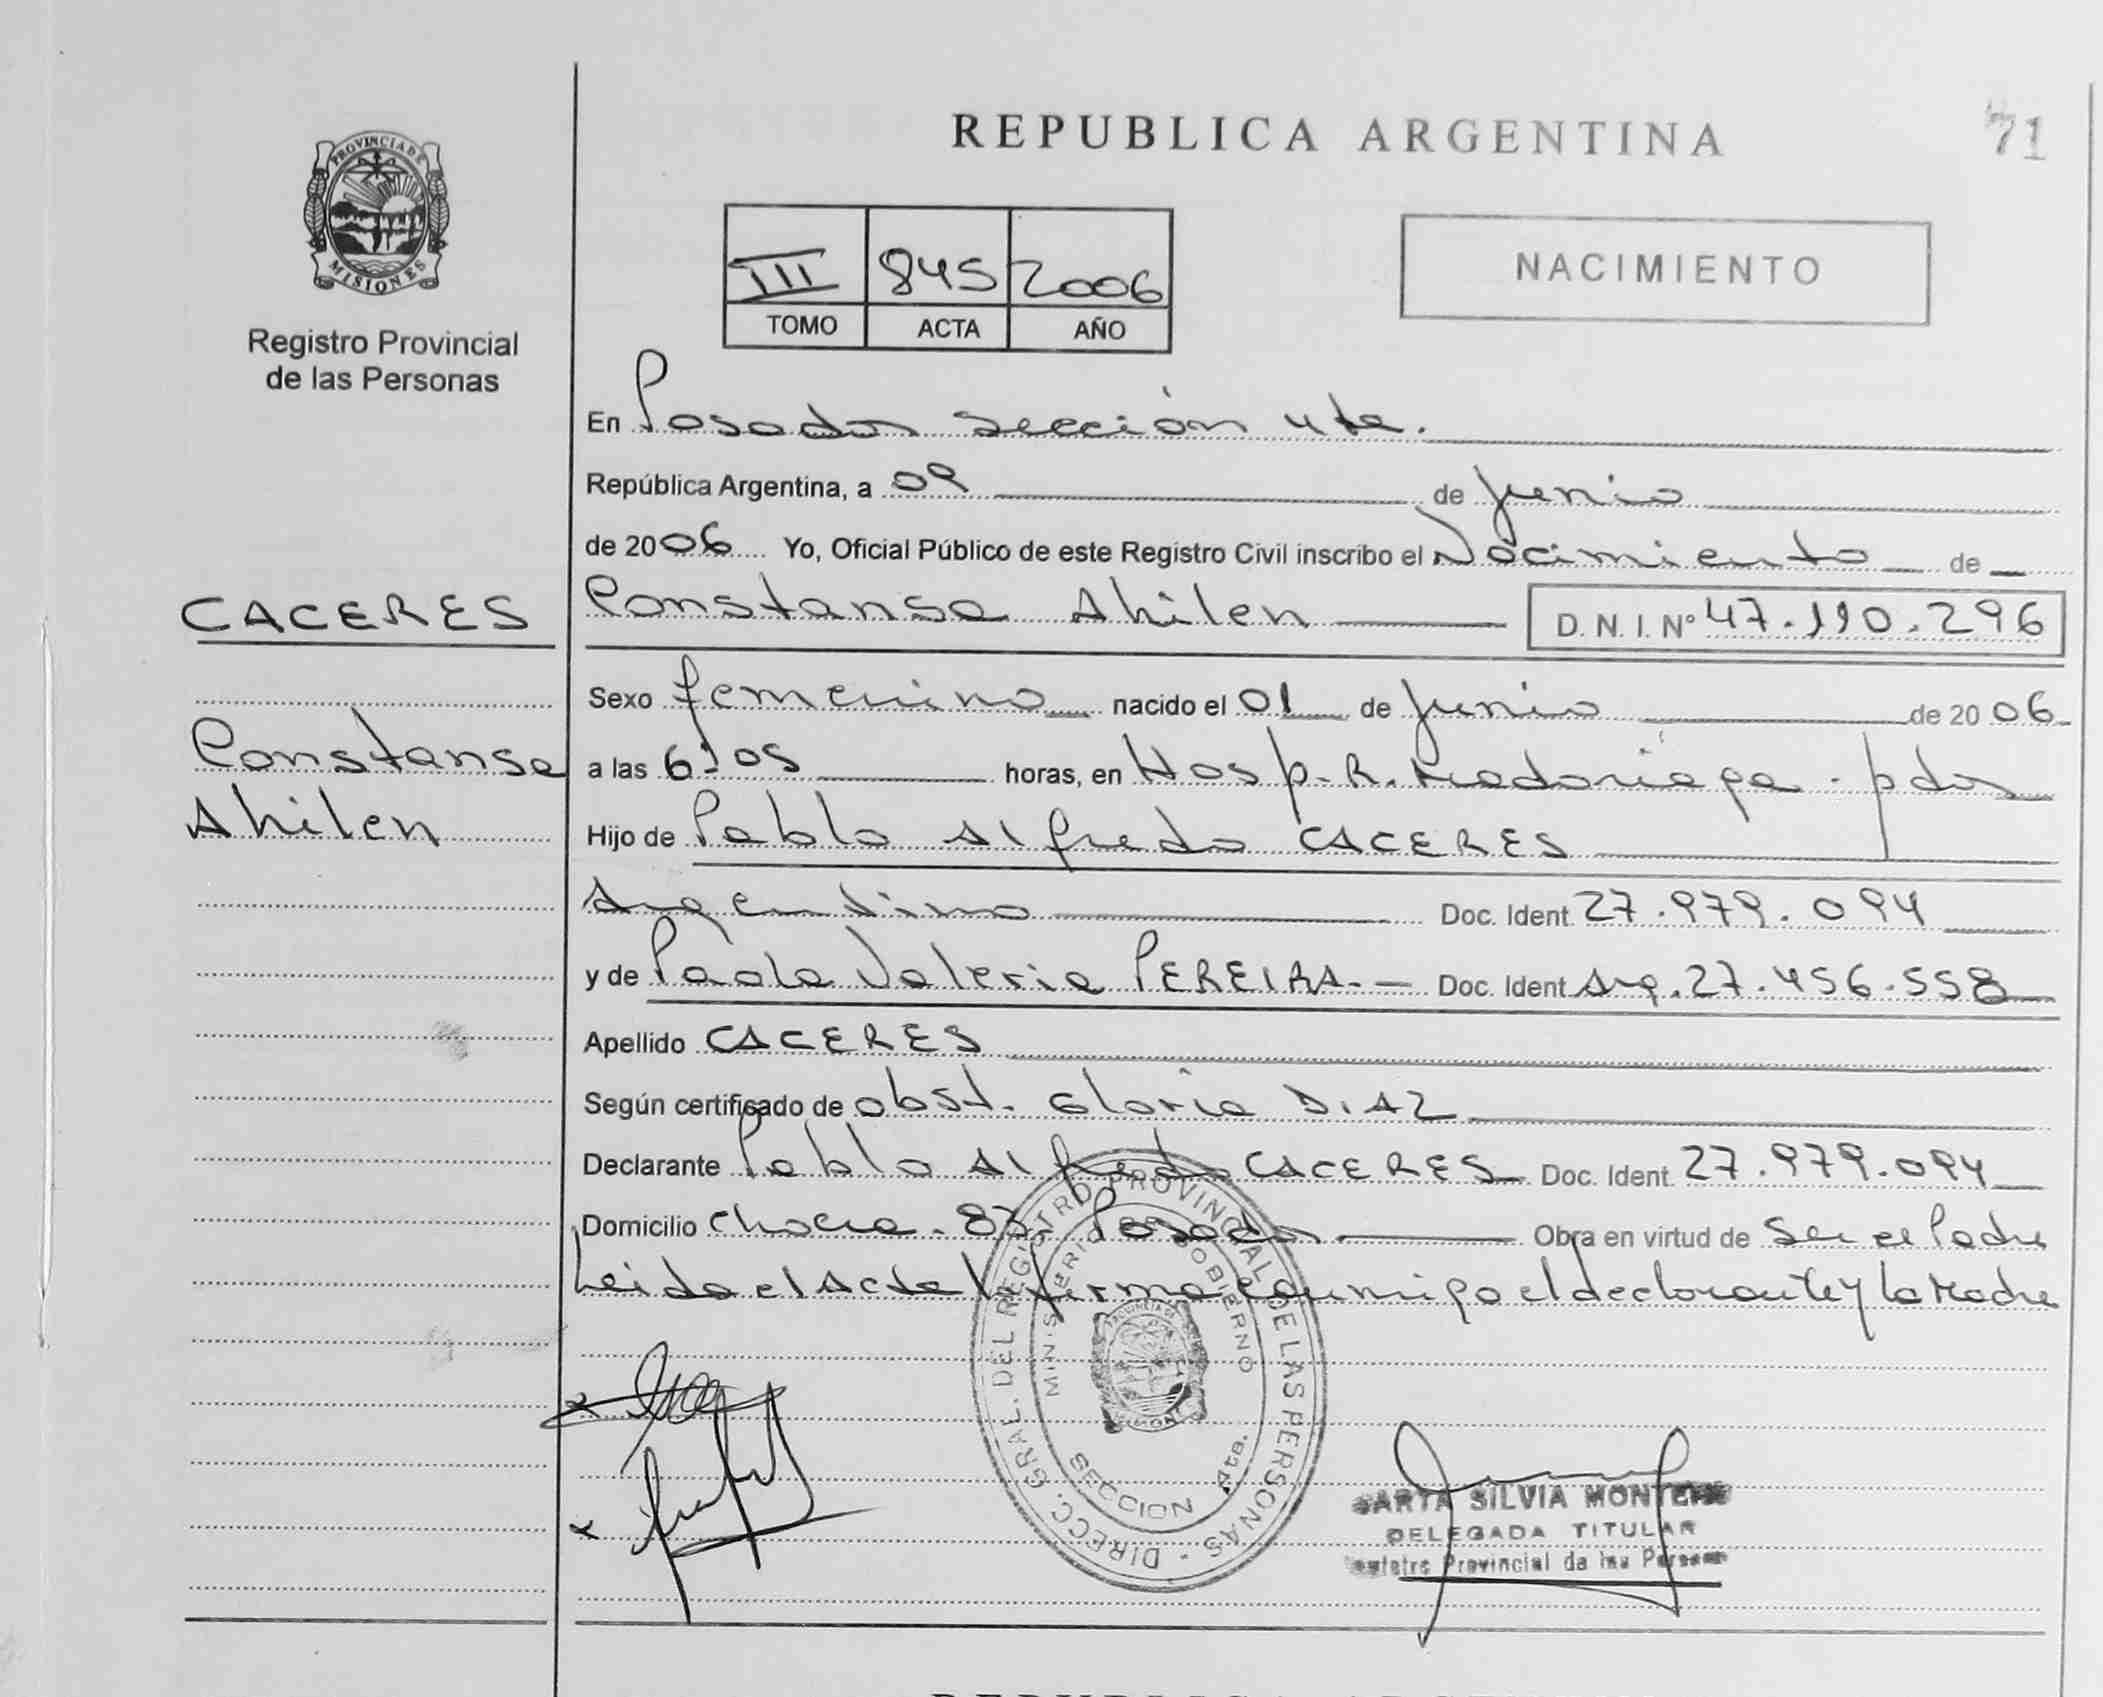 REPUBLICA ARGENTINA
71
PROVINCIA DE
MISIONES
Registro Provincial
de las Personas
III 845 2006
TOMO ACTA AÑO
NACIMIENTO
En Posadas sección 4ta.
República Argentina, a 09 de Junio
de 2006 Yo, Oficial Público de este Registro Civil inscribo el Nacimiento de
CACERES
Constansa Ahilen
D. N. I. Nº 47.190.296
Sexo femenino nacido el 01 de Junio de 2006
Constansa
Ahilen
a las 6:05 horas, en Hosp. R. Madariaga. pdas
Hijo de Pablo Alfredo CACERES
Argentino Doc. Ident. 27.979.094
y de Paola Valeria PEREIRA.- Doc. Ident Arg. 27.456.558
Apellido CACERES
Según certificado de obst. Gloria DIAZ
Declarante Pablo Alfredo CACERES Doc. Ident. 27.979.094
Domicilio Posadas Obra en virtud de Ser el Padre
Leida el Acta firma conmigo el declarante y la Madre
DIRECC. GRAL. DEL REGISTRO PROVINCIAL DE LAS PERSONAS
MINISTERIO DE GOBIERNO
SECCION 4ta.
SILVIA
DELEGADA TITULAR
Provincial de las